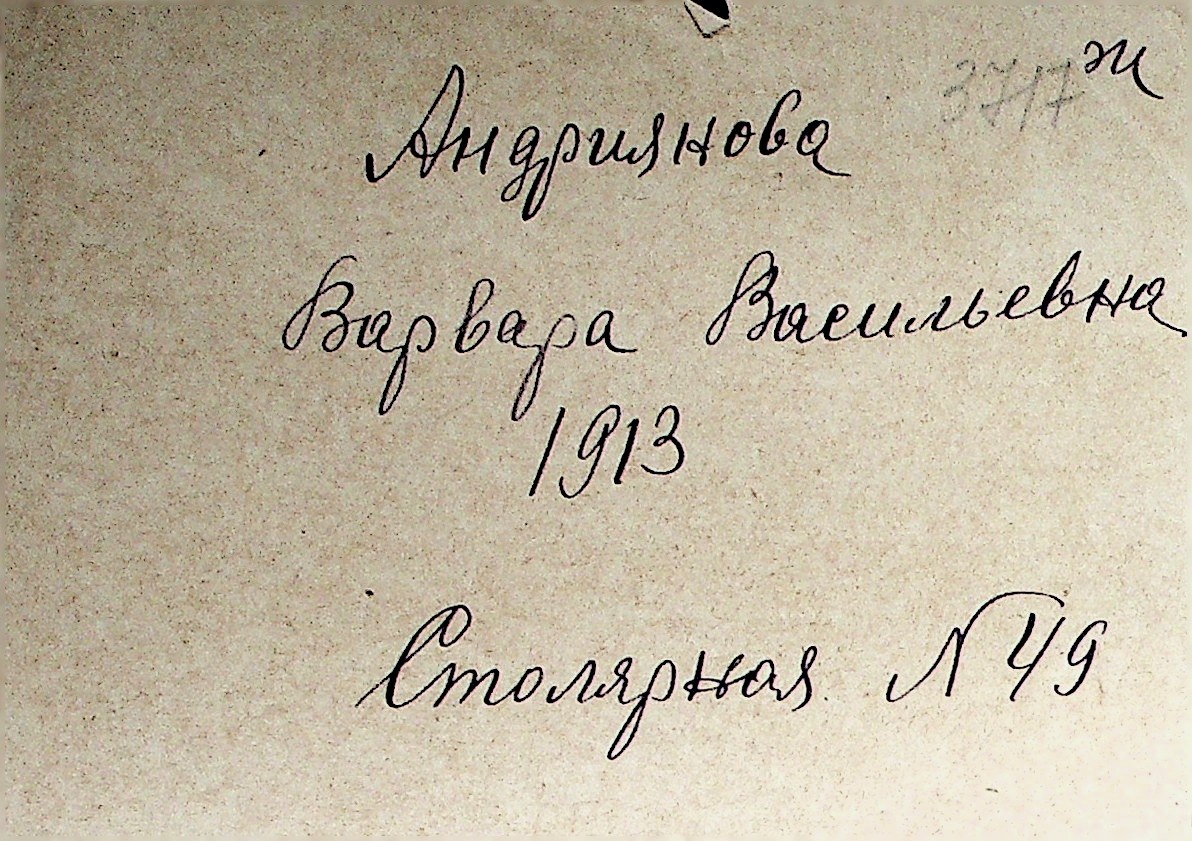 3717 ж
Андриянова
Варвара Васильевна
1913
Столярная N 49